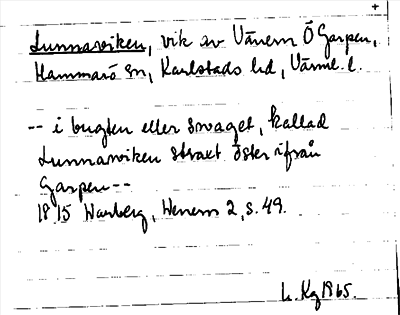 +
Lunnarviken, vik av Vänern Ö Garpen,
Hammarö sn, Karlstads hd, Värml. l.
-- i bugten eller swaget, kallad
Lunnarwiken straxt öster ifrån
Garpen --
1815 Warberg, Wenern 2, s. 49.
L. Kg 1965.